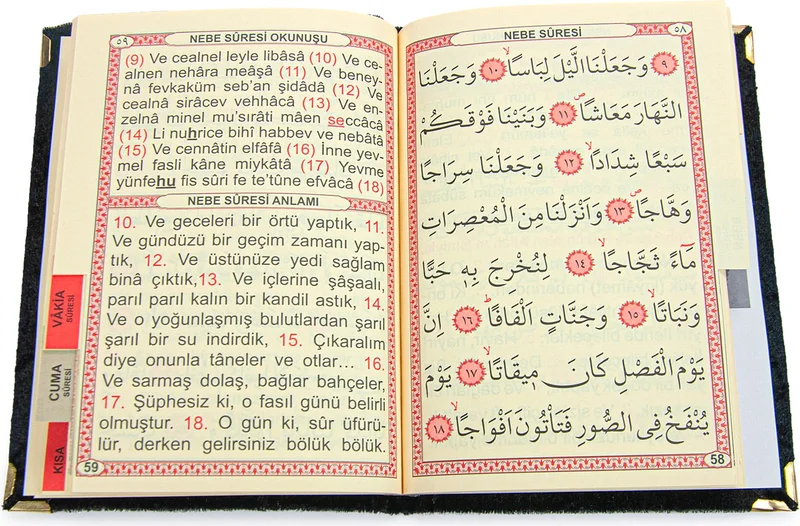 ٥٩
NEBE SÛRESİ OKUNUŞU
(9) Ve cealnel leyle libâsâ (10) Ve ce-
alnen nehâra meâşâ (11) Ve beney-
nâ fevkaküm seb'an şidâdâ (12) Ve
cealnâ sirâcev vehhâcâ (13) Ve en-
zelnâ minel mu'sırâti mâen seccâcâ
(14) Li nuhrice bihî habbev ve nebâtâ
(15) Ve cennâtin elfâfâ (16) İnne yev-
mel fasli kâne miykâtâ (17) Yevme
yünfehu fis sûri fe te'tûne efvâcâ (18)
NEBE SÛRESİ ANLAMI
10. Ve geceleri bir örtü yaptık, 11.
Ve gündüzü bir geçim zamanı yap-
tık, 12. Ve üstünüze yedi sağlam
binâ çıktık,13. Ve içlerine şâşaalı,
parıl parıl kalın bir kandil astık, 14.
Ve o yoğunlaşmış bulutlardan şarıl
şarıl bir su indirdik, 15. Çıkaralım
diye onunla tâneler ve otlar... 16.
Ve sarmaş dolaş, bağlar bahçeler,
17. Şüphesiz ki, o fasıl günü belirli
olmuştur. 18. O gün ki, sûr üfürü-
lür, derken gelirsiniz bölük bölük.
59
VÂKIA
SÛRESİ
CUMA
SÛRESİ
KISA
٥٨
NEBE SÛRESİ
٩ وَجَعَلْنَا الَّيْلَ لِبَاسًاۙ ١٠ وَجَعَلْنَا
النَّهَارَ مَعَاشًاۖ ١١ وَبَنَيْنَا فَوْقَكُمْ
سَبْعًا شِدَادًاۙ ١٢ وَجَعَلْنَا سِرَاجًا
وَهَّاجًاۖ ١٣ وَاَنْزَلْنَا مِنَ الْمُعْصِرَاتِ
مَٓاءً ثَجَّاجًاۙ ١٤ لِنُخْرِجَ بِهٖ حَبًّا
وَنَبَاتًاۙ ١٥ وَجَنَّاتٍ اَلْفَافًاۜ ١٦ اِنَّ
يَوْمَ الْفَصْلِ كَانَ مٖيقَاتًاۙ ١٧ يَوْمَ
يُنْفَخُ فِي الصُّورِ فَتَأْتُونَ اَفْوَاجًاۙ ١٨
58